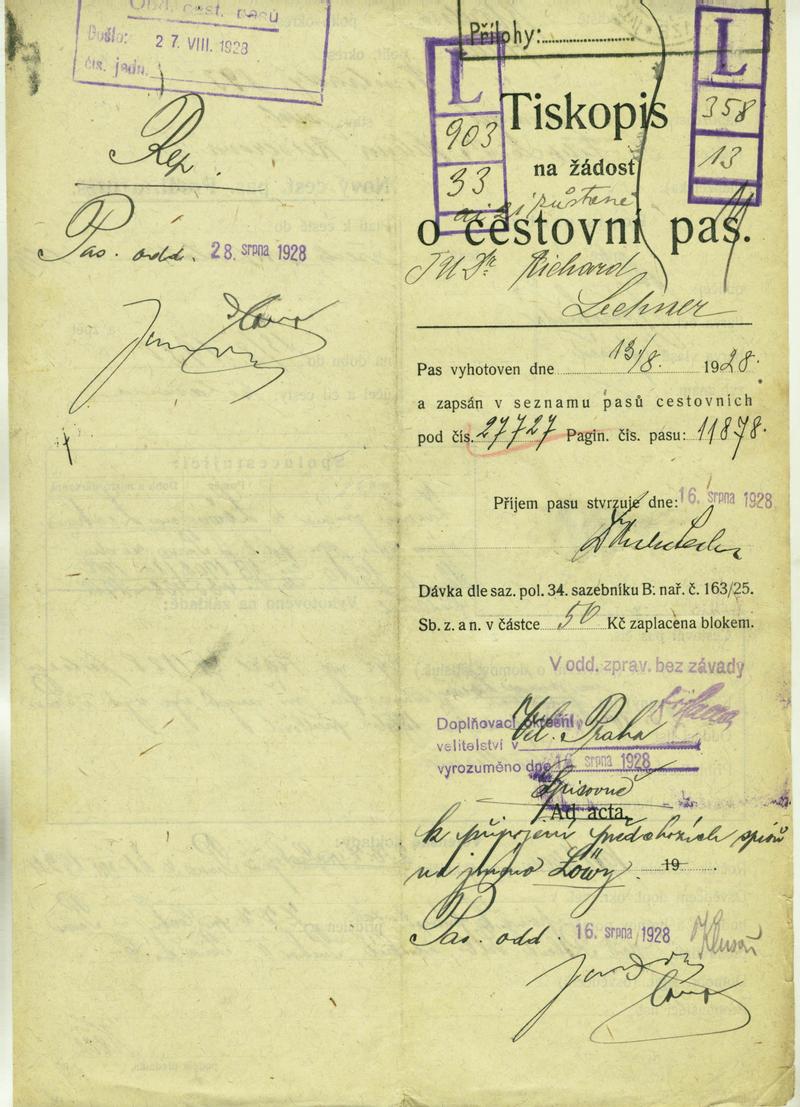 Odd. cest. pasů
Došlo: 27. VIII. 1928
čís. jedn.
Rep.
Pas. odd. 28. srpna 1928
Přílohy:
L
903
33
L
358
13
Tiskopis
na žádost
zůstane
o cestovní pas.
JUDr Richard
Lechner
Pas vyhotoven dne 13/8. 1928.
a zapsán v seznamu pasů cestovních
pod čís. 27727 Pagin. čís. pasu: 11878.
Příjem pasu stvrzuje dne: 16. srpna 1928
Dávka dle saz. pol. 34. sazebníku B: nař. č. 163/25.
Sb. z. a n. v částce 50 Kč zaplacena blokem.
V odd. zprav. bez závady
Doplňovací okresní Vel. Praha
velitelství v
vyrozuměno dne 16. srpna 1928
Spisovně
Ad acta.
k připojení předchozích spisů
na jméno Löwy. 19
Pas. odd. 16. srpna 1928